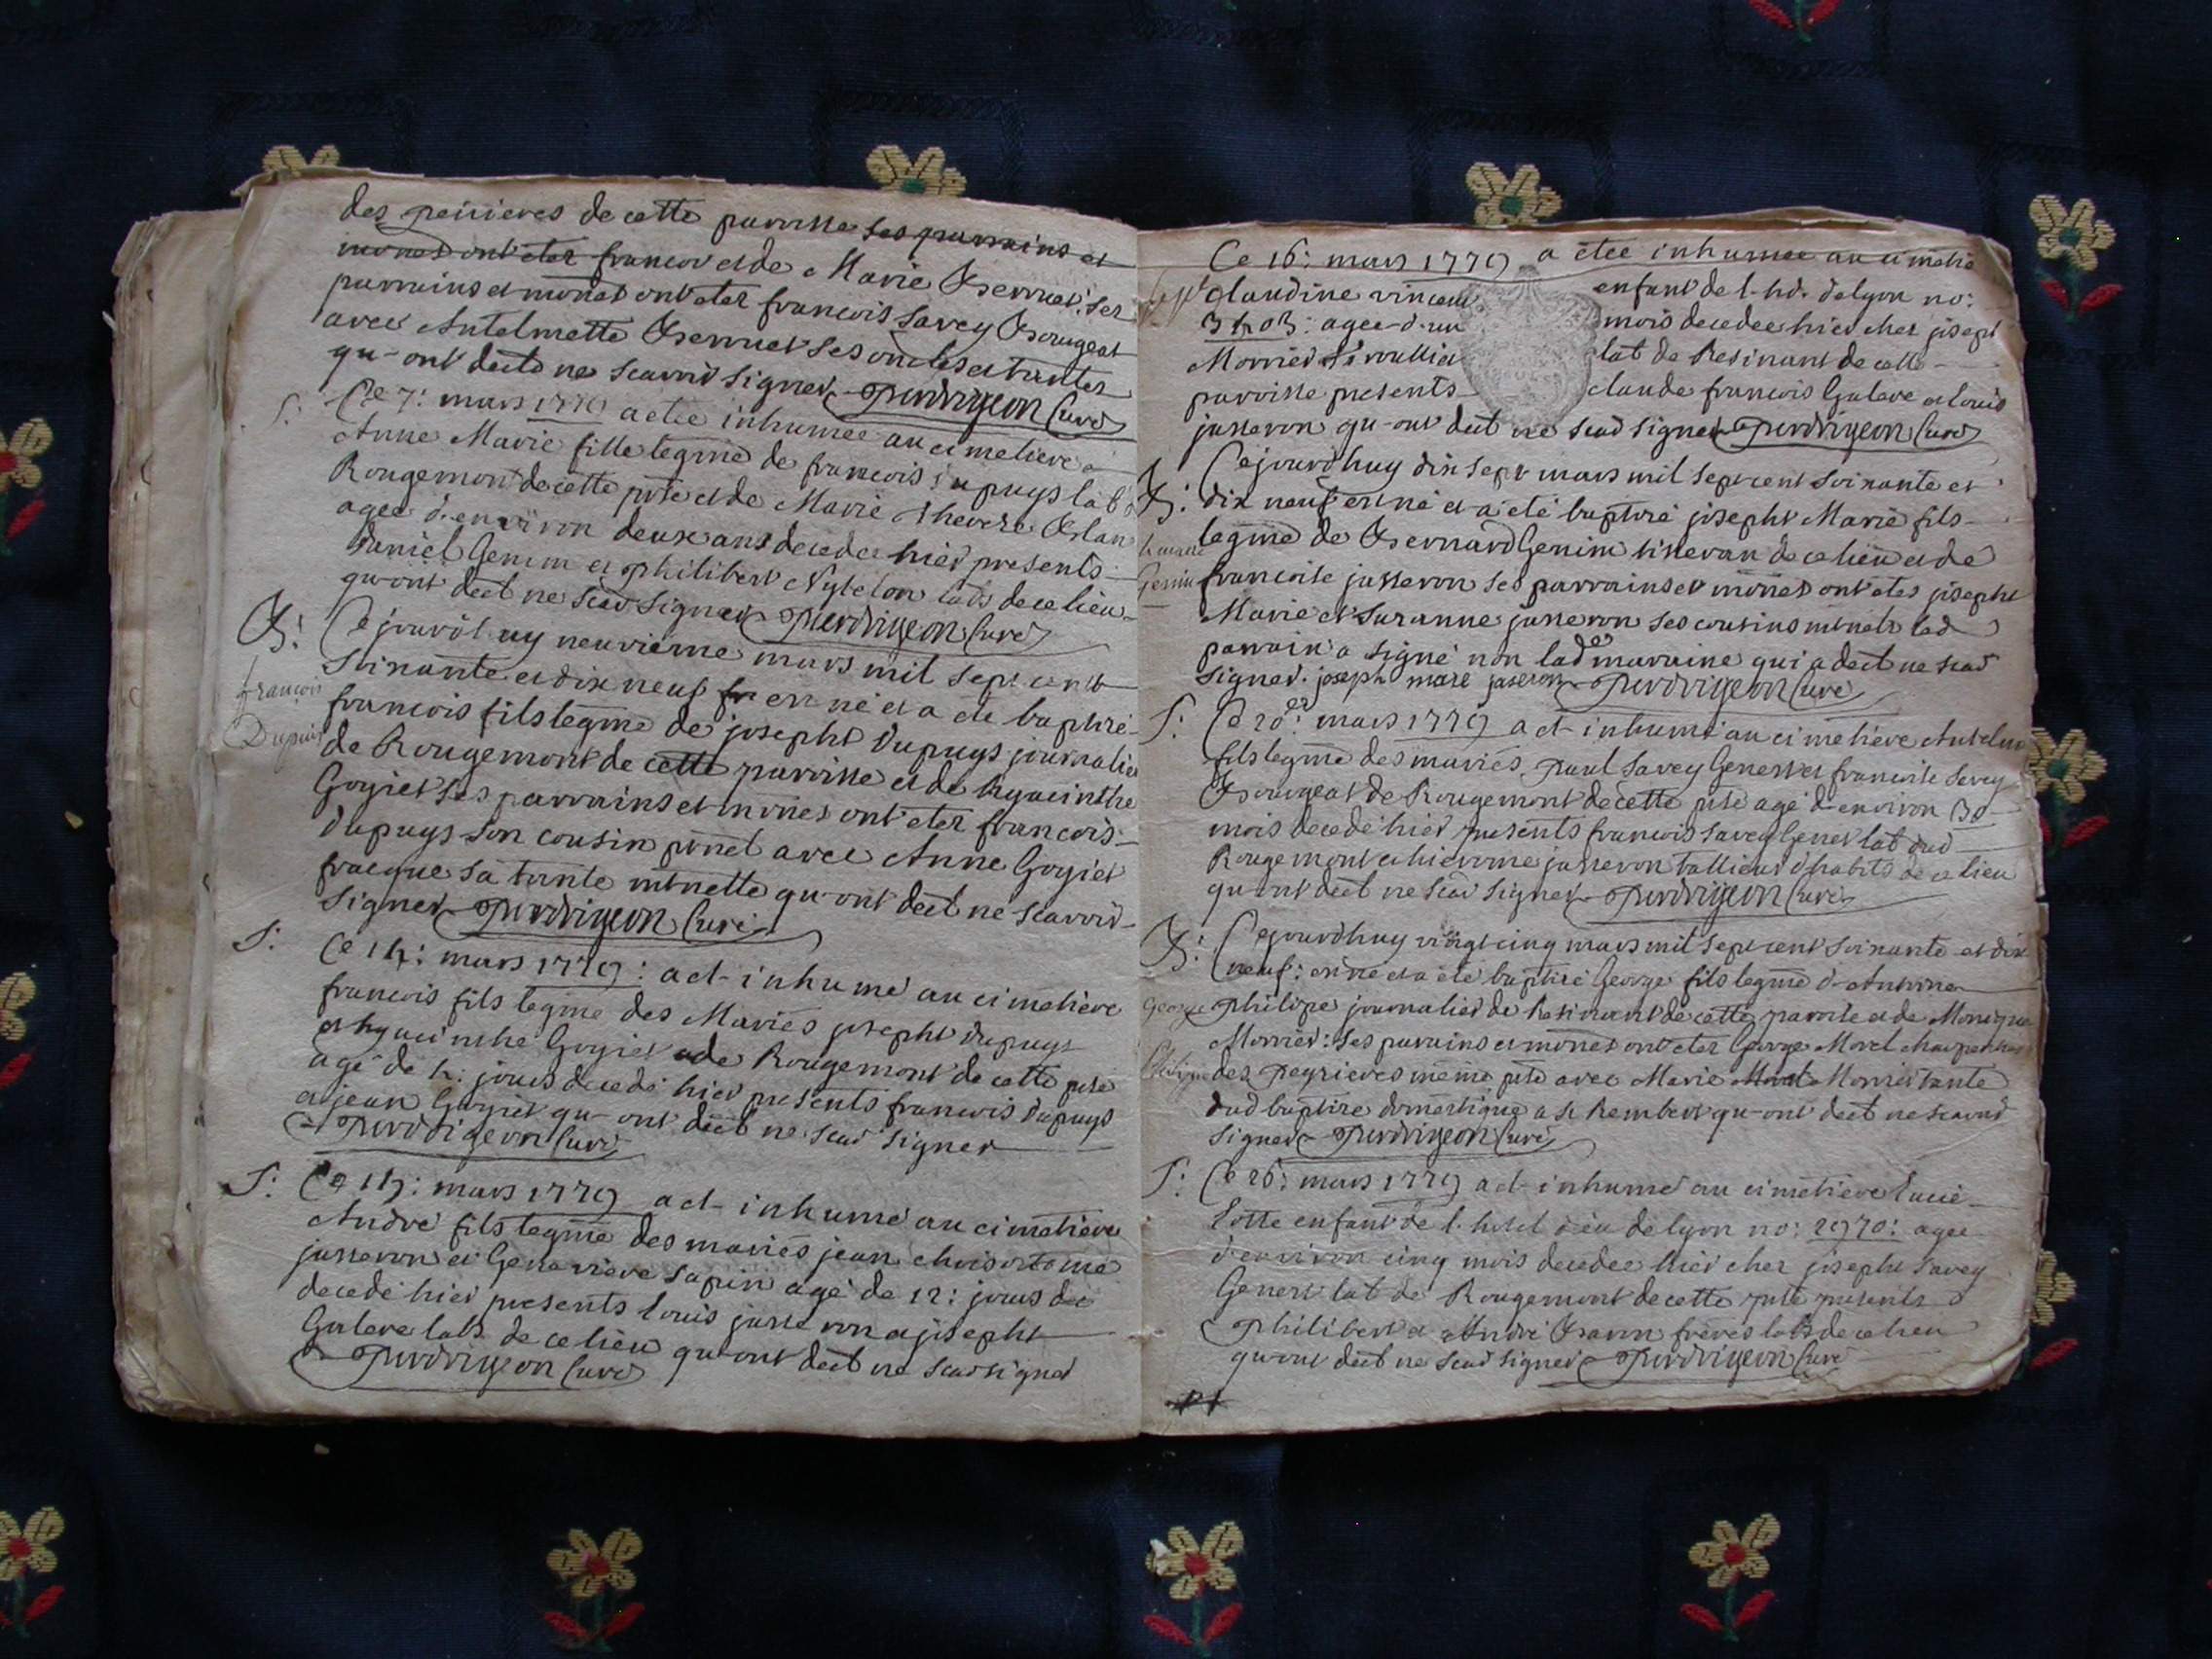 des peirieres de cette parroisse ses parrains et
mones ont etes francois et de Marie Berruet: ses
parrains et mones ont etes francois Savey Bougeat
avec Antelmette Berruet ses oncles et tantes
qu-ont declt ne scavoir signer Perdrigeon Curé
S: Ce 7: mars 1779 a etee inhumee au cimetiere
Anne Marie fille legme de francois Dupuys lab
Rougemont de cette pste et de Marie Therese
agee d-environ deux ans decedee hier presents
Daniel Genim et philibert labs de ce lieu
qu-ont declt ne scav signer Perdrigeon Curé
B: Cejourdhuy neuvieme mars mil sept cent
soixante et dix neuf est né et a ete baptizé
francois fils legme de joseph Dupuys journalier
francois
Dupuis
de Rougemont de cette parroisse et de hyacinthe
Goyiet ses parrains et mones ont etes francois
Dupuys son cousin avec Anne Goyiet
sa tante qu-ont declt ne scavoir
signer Perdrigeon Curé
S: Ce 14: mars 1779: a et- inhumé au cimetiere
francois fils legme des Mariés joseph Dupuys
et hyacinthe Goyiet de Rougemont de cette pste
agé de 4: jours decedé hier presents francois Dupuys
et jean Goyiet qu-ont declt ne scav signer
Perdrigeon Curé
S: Ce 15: mars 1779 a et- inhumé au cimetiere
André fils legme des mariés jean chrisostome
jusseron et Genevieve Sapin agé de 12: jours
decedé hier presents louis jusseron et joseph
Galere labs de ce lieu qu-ont declt ne scav signer
Perdrigeon Curé
Ce 16: mars 1779 a étée inhumee au cimetie
Claudine vincent enfant de l-hd. de lyon no:
3403: agee d-un mois decedee hier chez joseph
Morrier lab de Resinant de cette
parroisse presents claude francois Galere et louis
jusseron qu-ont declt ne scav signer Perdrigeon Curé
B: Cejourdhuy dix sept mars mil sept cent soixante et
dix neuf est né et a été baptizé joseph Marie fils
legme de Bernard Genim tisseran de ce lieu et de
Genim
francoise jusseron ses parrains et mones ont etes joseph
Marie et Suzanne jusseron ses cousins led
parrain a signé non lade marraine qui a declt ne scav
signer. joseph mare jaseron Perdrigeon Curé
S: Ce 20e: mars 1779 a et- inhumé au cimetiere Antelme
fils legme des mariés paul Savey Genest et francoise Savey
Bougeat de Rougemont de cette pste agé d-environ 30
mois decedé hier presents francois Savey Genest lab dud
Rougemont et hierome jusseron tallieur d'habits de ce lieu
qu-ont declt ne scav signer Perdrigeon Curé
B: Cejourdhuy vingt cinq mars mil sept cent soixante et dix
neuf: est né et a été baptizé George fils legme d-Antoine
George
philipe journalier de Resinant de cette parroisse et de Monique
Morrier: ses parrains et mones ont etes George Morel charpentier
Philipe
des peyrieres meme pste avec Marie Morel Morrier tante
dud baptizé domestique a st Rembert qu-ont declt ne scavoir
signer Perdrigeon Curé
S: Ce 26: mars 1779 a et- inhumé au cimetiere lucie
Lotte enfant de l. hotel dieu de lyon no: 2970: agee
d'environ cinq mois decedee hier chez joseph Savey
Genest lab de Rougemont de cette pste presents
philibert et André freres labs de ce lieu
qu-ont declt ne scav signer Perdrigeon Curé